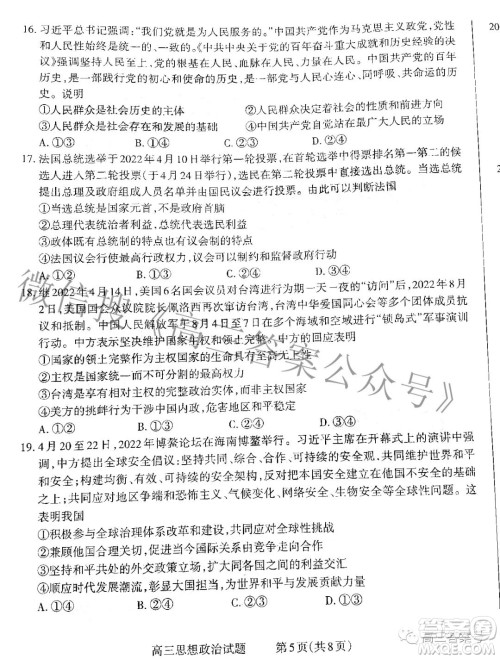 16. 习近平总书记强调:“我们党就是为人民服务的。”中国共产党作为马克思主义政党,党性
和人民性始终是一致的、一致的。《中共中央关于党的百年奋斗重大成就和历史经验的决
议》强调坚持人民至上,党的根基在人民、血脉在人民、力量在人民。中国共产党的百年
历史,就是一部践行党的初心和使命的历史,就是一部党与人民心连心、同呼吸、共命运的历
史。说明
①人民群众是社会历史的主体
②人民群众是党执政兴国的前提和保障
③人民群众是社会存在和发展的基础
④共产党自觉站在最广大人民的立场上
A.①③ B.①④ C.②③ D.②④
17. 法国总统选举于2022年4月10日举行第一轮投票,在首轮选举中得票排名第一第二的候
选人进入第二轮投票(于4月24日举行),选民在第二轮投票中直接选出总统。当选总统
提出总理及政府组成人员名单并由国民议会进行投票表决。由此可以判断法国
①当选总统是国家元首,不是政府首脑
②总理代表统治者利益,总统代表选民利益
③政体既有总统制的特点也有议会制的特点
④议会行使立法权的同时有权制约和监督政府行动
A.①② B.①③ C.②④ D.③④
18. 继2022年4月14日,美国6名国会议员对台湾进行为期一天一夜的“访问”后,2022年8月
2日,美国国会众议院院长佩洛西再次窜访台湾,台湾中华爱国同心会等多个团体成员抗议
和抵制。中国人民解放军于8月4日至7日在多个海域和空域进行“锁岛式”军事演训
行动。中方表示坚决维护国家主权、安全和领土完整。中方的回应表明
①国家的领土完整作用具有至高无上性
②主权是国家统一而不可分割的最高权力
③台湾是享有主权的完整政治实体
④美方的挑衅干扰中美关系向前发展
A.①② B.①③ C.②④ D.③④
19. 4月20至22日,2022年博鳌论坛在海南博鳌举行。习近平主席在开幕式上的演讲中强
调,中方提出全球安全倡议,坚持共同、综合、合作、可持续的安全观,共同维护世界和平
和安全。强调要坚持统筹维护传统领域和非传统领域安全,
题,共同应对地区争端和恐怖主义、气候变化、网络安全、生物安全等全球性问题。这
表明我国
①积极参与全球治理体系改革和建设,共同应对全球性挑战
②兼顾他国正当关切推动当今国际关系由竞争走向合作
③坚持和平共处的外交政策立场,扩大同各国的利益交汇
④顺应时代发展潮流,彰显大国担当,为世界和平与发展贡献力量
A.①② B.①④ C.②③ D.③④
高三思想政治试题 第5页(共8页)
微信搜《高三答案公众号》
20
2